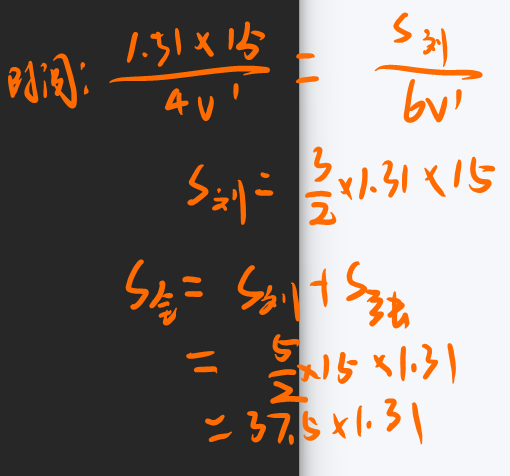 时间: 1.31×15 / 4v' = S刘 / 6v'
S刘 = 3/2 ×1.31×15
S全 = S刘 + S李
= 5/2 ×15×1.31
= 37.5×1.31